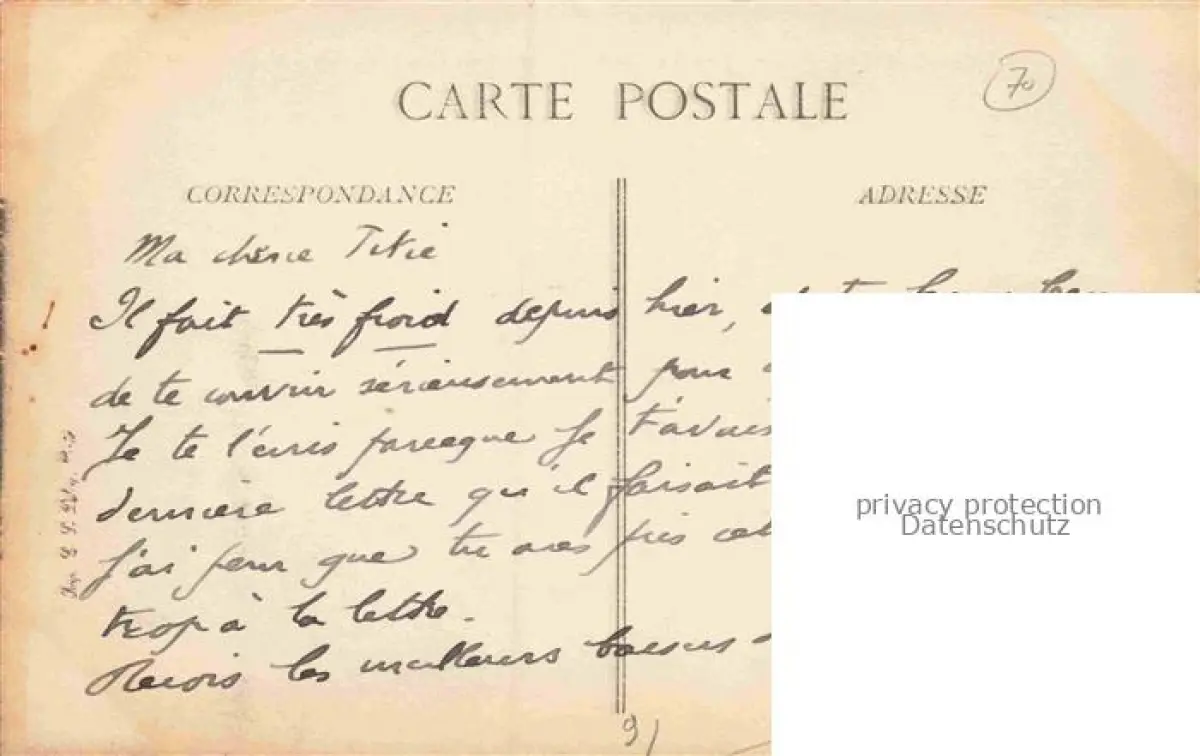 CARTE POSTALE
70
CORRESPONDANCE
ADRESSE
Ma chérie Titie
Il fait très froid depuis hier,
de te couvrir sérieusement pour
Je te l'écris parceque je t'avais
dernière lettre qu'il faisait
J'ai peur que tu aies pris cela
trop à la lettre.
Reçois les meilleurs baisers
privacy protection
Datenschutz